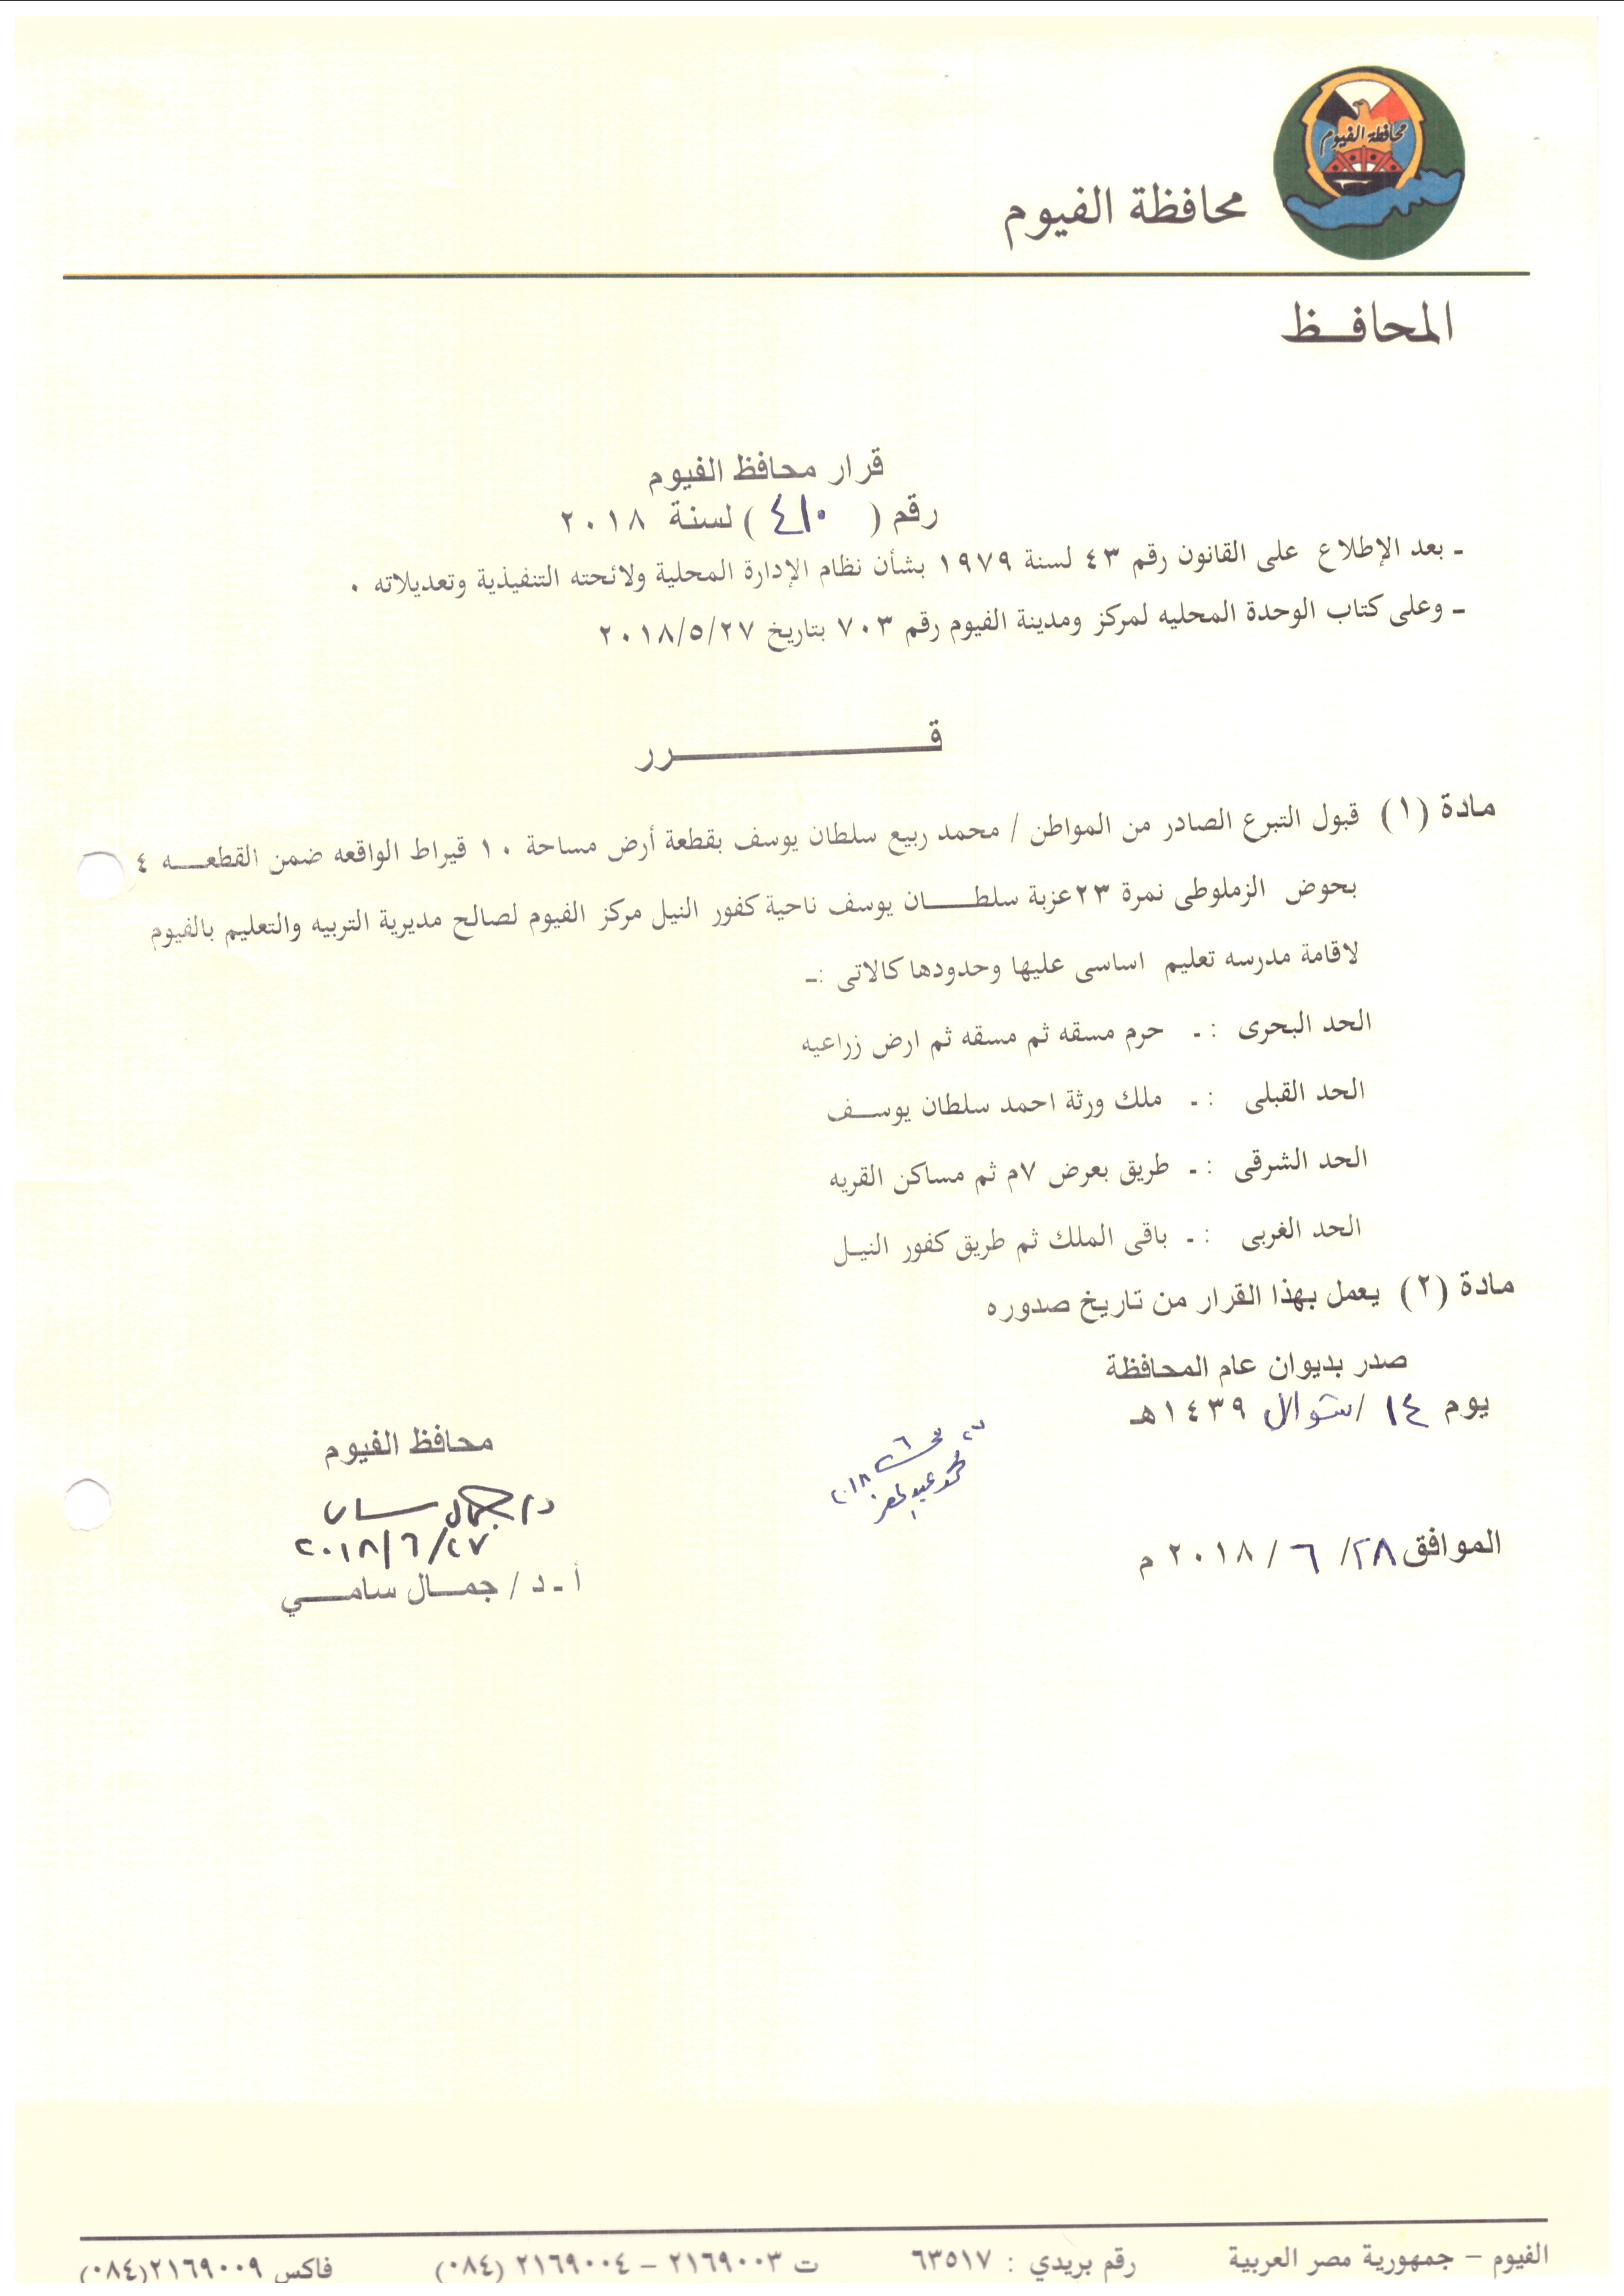 محافظة الفيوم
محافظة الفيوم
المحافــظ
قرار محافظ الفيوم
رقم ( ٤١٠ ) لسنة ٢٠١٨
ـ بعد الإطلاع على القانون رقم ٤٣ لسنة ١٩٧٩ بشأن نظام الإدارة المحلية ولائحته التنفيذية وتعديلاته ٠
ـ وعلى كتاب الوحدة المحليه لمركز ومدينة الفيوم رقم ٧٠٣ بتاريخ ٢٠١٨/٥/٢٧
قــــــــــــرر
مادة (١) قبول التبرع الصادر من المواطن / محمد ربيع سلطان يوسف بقطعة أرض مساحة ١٠ قيراط الواقعه ضمن القطعـــه ٤
بحوض الزملوطى نمرة ٢٣عزبة سلطـــــان يوسف ناحية كفور النيل مركز الفيوم لصالح مديرية التربيه والتعليم بالفيوم
لاقامة مدرسه تعليم اساسى عليها وحدودها كالاتى :ـ
الحد البحرى :ـ حرم مسقه ثم مسقه ثم ارض زراعيه
الحد القبلى :ـ ملك ورثة احمد سلطان يوســف
الحد الشرقى :ـ طريق بعرض ٧م ثم مساكن القريه
الحد الغربى :ـ باقى الملك ثم طريق كفور النيـل
مادة (٢) يعمل بهذا القرار من تاريخ صدوره
صدر بديوان عام المحافظة
يوم ١٤ /شوال ١٤٣٩هـ
محافظ الفيوم
٢٠١٨/٦/٢٧
الموافق ٢٨/ ٦ / ٢٠١٨ م
أ ـ د / جمـــال سامـــــي
الفيوم – جمهورية مصر العربية رقم بريدي : ٦٣٥١٧ ت ٢١٦٩٠٠٣ – ٢١٦٩٠٠٤ (٠٨٤) فاكس ٢١٦٩٠٠٩(٠٨٤)